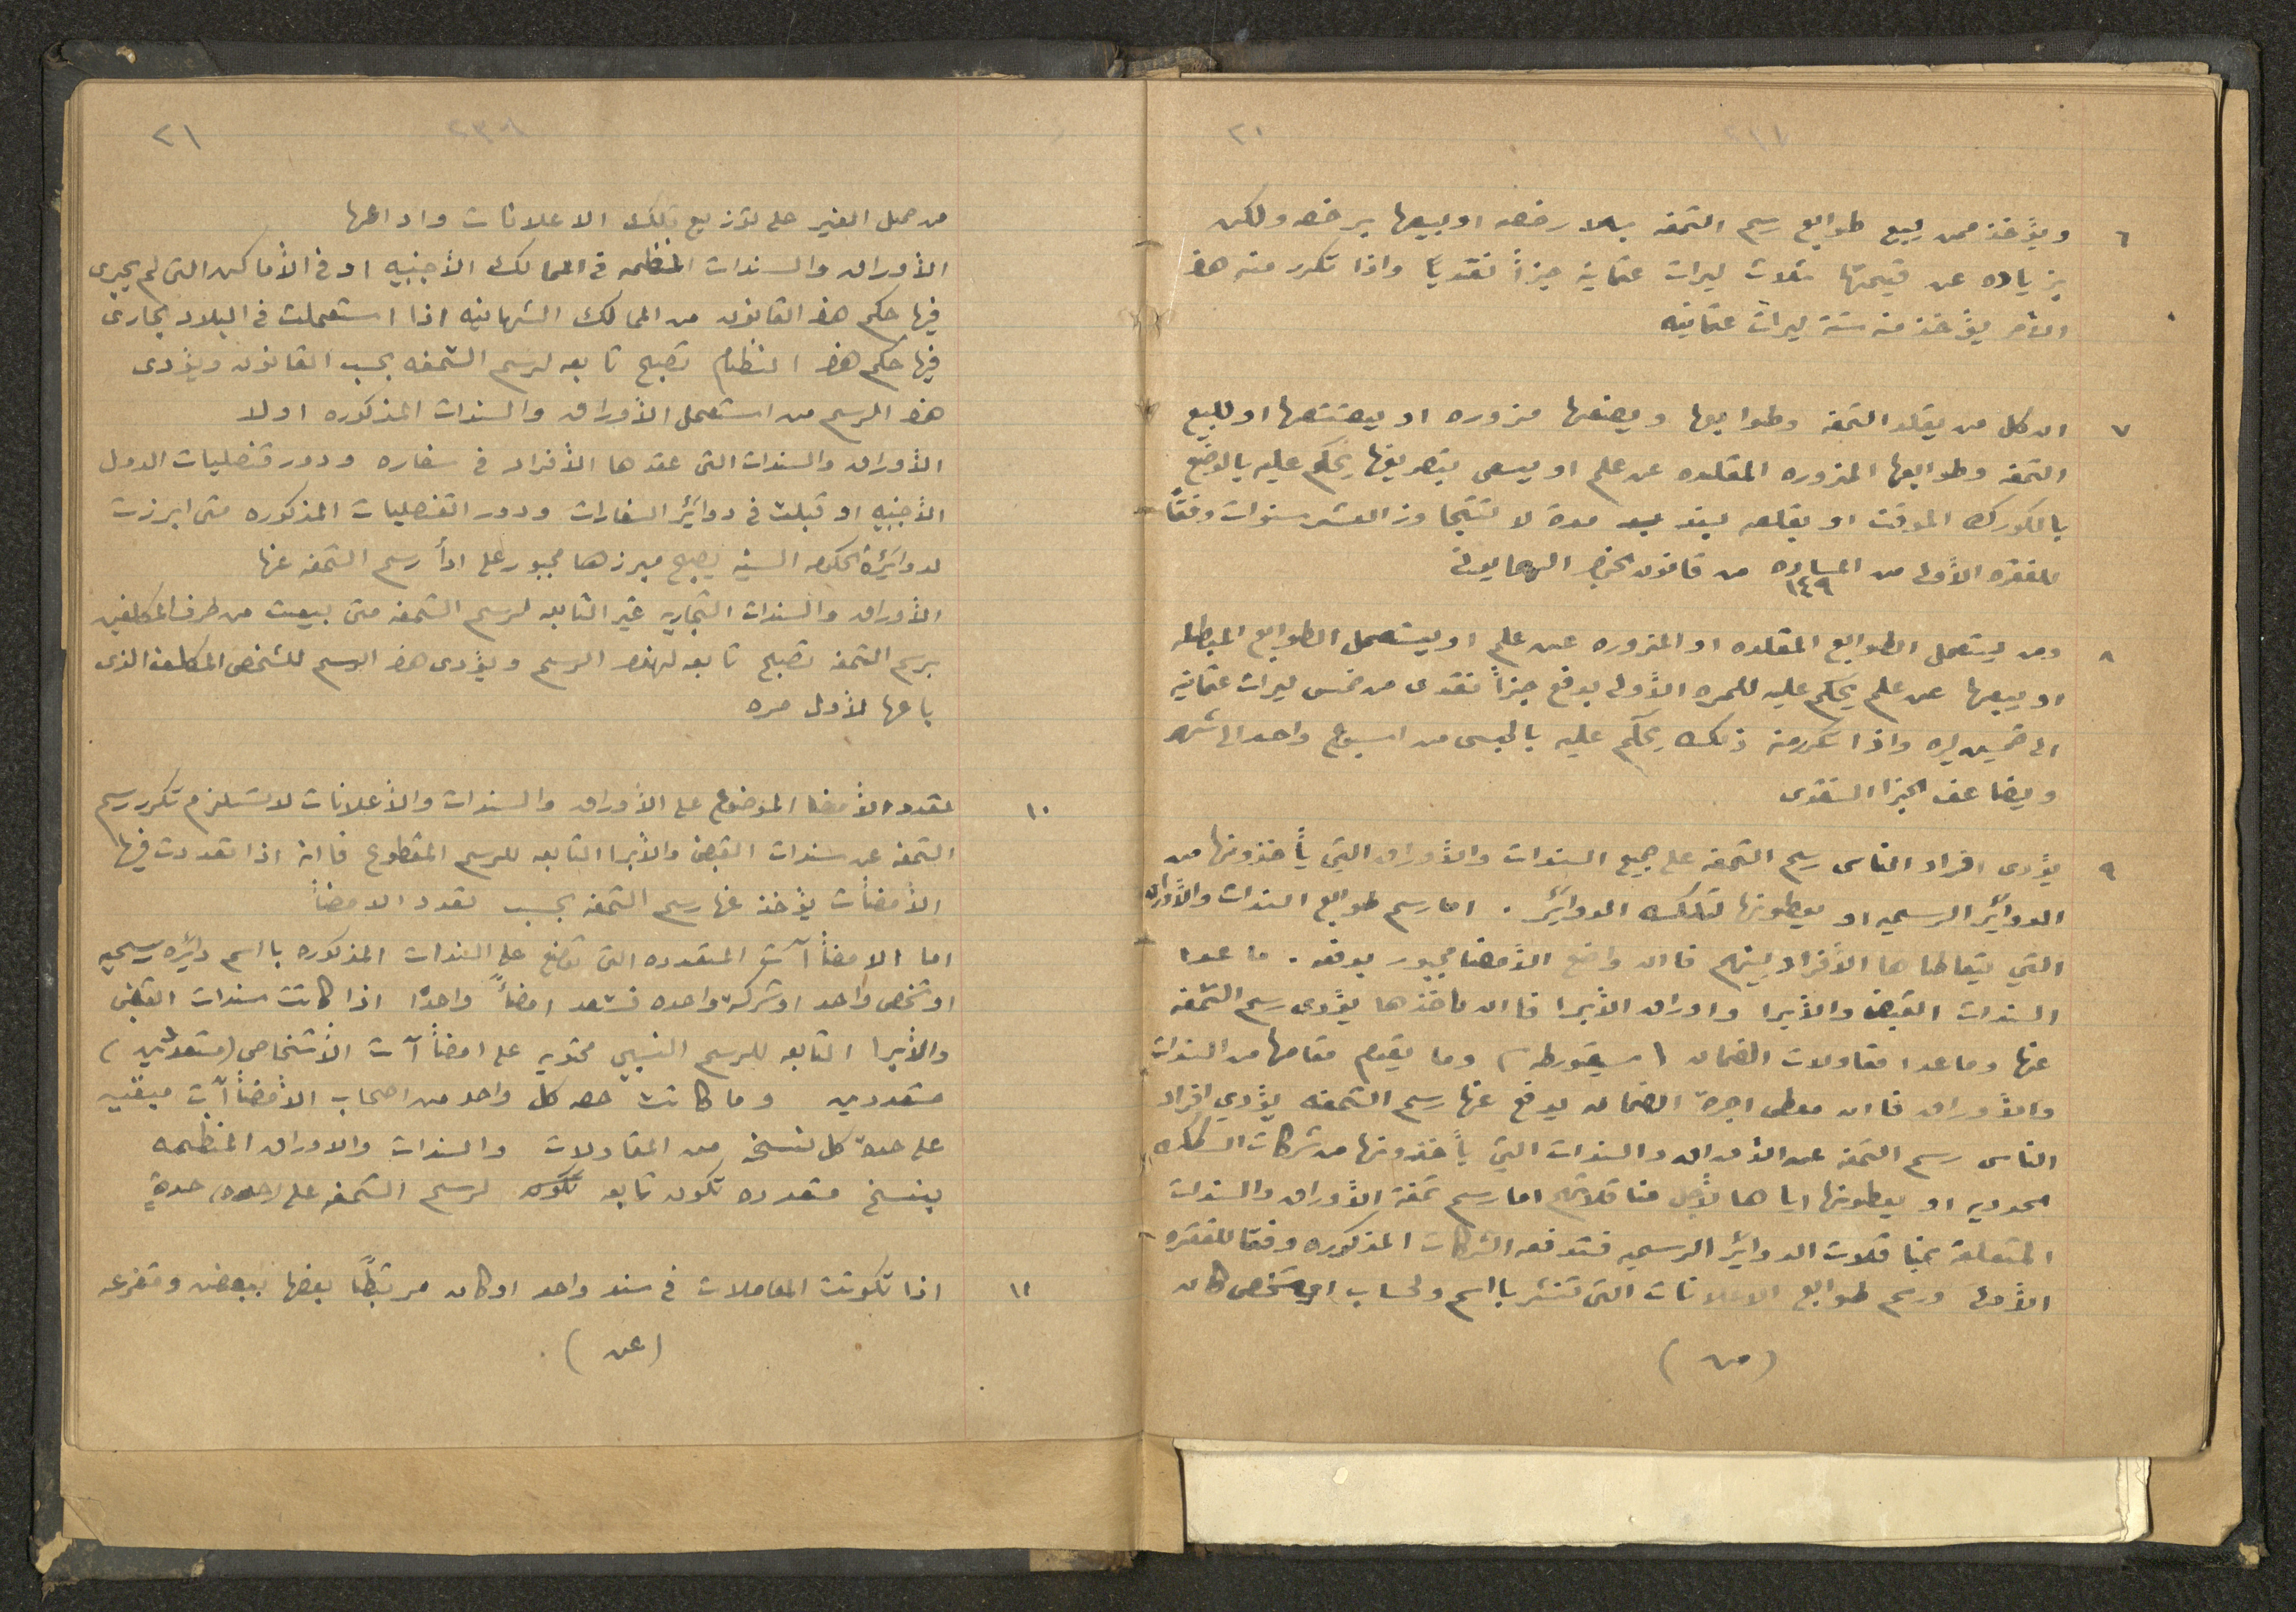 ٢٠
٦ ويؤخذ ممن يبيع طوابع رسم التمغه بلا رخصه او يبيعها برخصه ولكن
بزياده عن قيمتها ثلاث ليرات عثمانية جزاً نقديًا واذا تكرر منه هذا
الأمر يؤخذ منه ستة ليرات عثمانيه
٧ ان كل من يقلد التمغه وطوابعها ويصنعها مزوره او يصتنعها او للبيع
التمغه وطوابعها المزوره المقلده عن علم او يسعى بتصريفها يحكم عليه بالوضع
بالكورك الموقت او بقلعه بند مدة لا تتجاوز العشر سنوات وفقًا
للفقره الأولى من الماده ١٤٩ من قانون الجزا الهمايونى
٨ ومن يستعمل الطوابع المقلده او المزوره عن علم او يستعمل الطوابع المبطله
او يبيعها عن علم يحكم عليه للمره الأولى بدفع جزاً نقدى من خمس ليرات عثمانيه
الى خمسين ليره واذا تكرر منه ذلك يحكم عليه بالحبس من اسبوع واحد الى شهر
ويضاعف الجزا النقدى
٩ يؤدى افراد الناس رسم التمغه على جميع السندات والأوراق التي يأخذونها من
الدوائر الرسميه او يعطونها لتلك الدوائر . اما رسم طوابع السندات والأوراق
التي يتعاطاها الأفراد بينهم فان واضع الأمضا مجبور بدفعه . ما عدا
السندات القبض والأبرا واوراق الأبرا فان ماخذها يؤدى رسم التمغه
عنها وما عدا مقاولات الضمان ( سيغورطه ) وما يقوم مقامها من السندات
والأوراق فان معطى اجرة الضمان يدفع عنها رسم التمغه يؤدي افراد
الناس رسم التمغه عن الأوراق والسندات التي يأخذونها من شركات السكك
الحدديه او يعطونها اياها لأجل مناقلاتهم اما رسم تمغة الأوراق والسندات
المتعلقه بمناقلات الدوائر الرسميه فتدفعه الشركات المذكوره وفقًا للفقره
الأولى ورسم طوابع الاعلانات التى تنشر باسم ولحساب اي شخص كان
( من )
٢١
من حمل الغير على توزيع تلك الاعلانات وادا عها
الأوراق والسندات المنظمه في الممالك الأجنبيه او في الأماكن التى لم يجرى
فيها حكم هذ القانون من الممالك الشهانيه اذا استعملت في البلاد الجارى
فيها حكم هذ النظام تصبح تابعه لرسم التمغه بحسب القانون ويؤدى
هذ الرسم من استعمل الأوراق والسندات المذكوره اولا
الأوراق والسندات التى عقدها الأفراد في سفاره ودور قنصليات الدول
الأجنبيه او قبلت في دوائر السفارات ودور القنصليات المذكوره متى ابرزت
لدوائر الحكومه السنيه يصبح مبرزها مجبور على ادأ رسم التمغه عنها
الأوراق والسندات التجاريه غير التابعه لرسم التمغه متى بيعت من طرف المكلفين
برسم التمغه تصبح تابعه لهذا الرسم ويؤدى هذ الرسم للشخص المكلف الذى
باعها لأول مره
١٠ تعدد الأمضا الموضوع على الأوراق والسندات والأعلانات لا تستلزم تكرر رسم
التمغه عن سندات القبض والأبرا التابعه للرسم المقطوع فانه اذا تعددت فيها
الأمضأت يؤخذ عنها رسم التمغه بحسب تعدد الامضأ
اما الامضأآت المتعدده التى توضع على السندات المذكوره باسم دائره رسميه
او شخص واحد او شركة واحده فتعد امضأً واحدًا اذا كانت سندات القبض
والأبرا التابعه للرسم النسبي محتويه على امضأآت الأشخاص ( متعددين )
متعددين وما كانت حصه كل واحد من اصحاب الأمضأآت مبينه
على حدة كل نسخه من المقاولات والسندات والاوراق المنظمه
بنسخ متعدده تكون تابعه لرسم التمغه على ( حده ) حدة
١١ اذا تكونت المعاملات في سند واحد او كان مرتبطًا بعضها ببعض ومتفرعه
( عن )